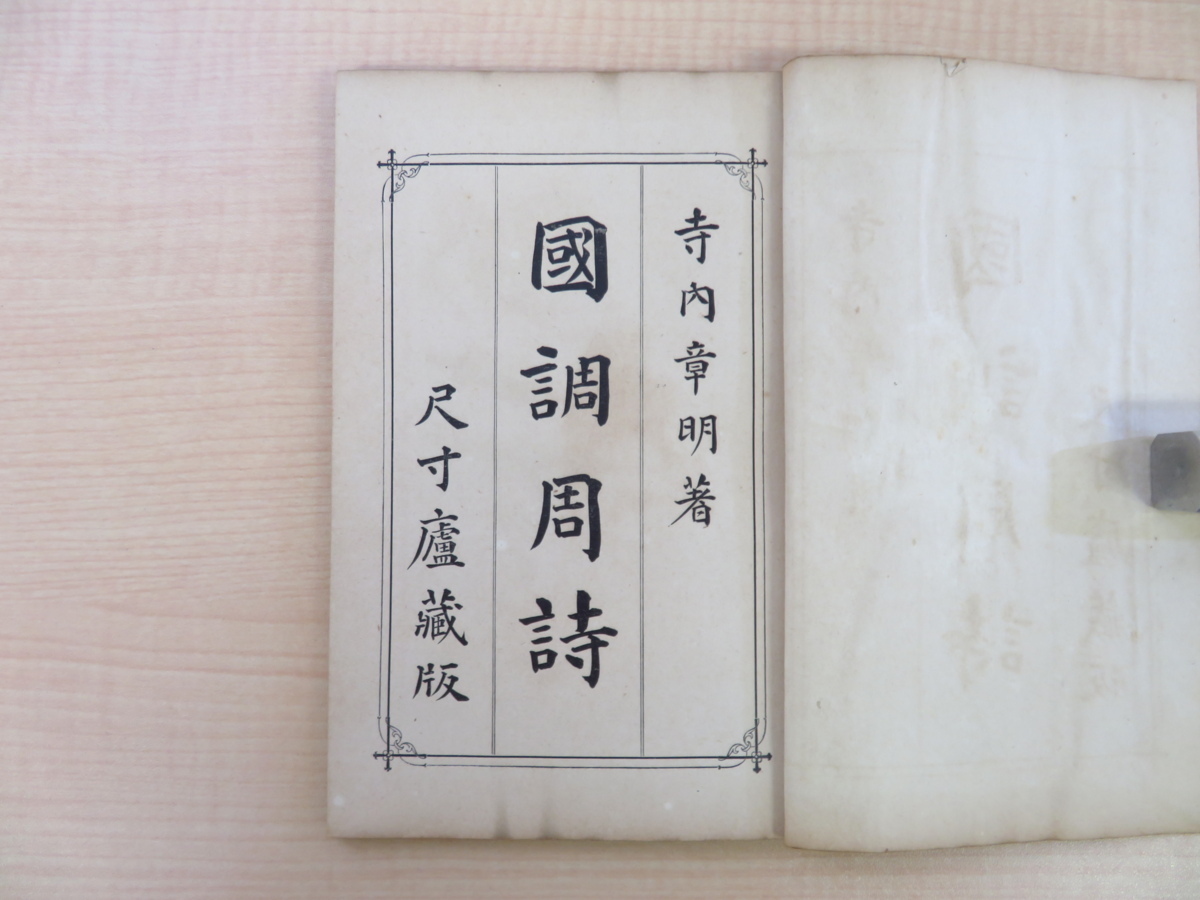 寺內章明著
國調周詩
尺寸廬藏版